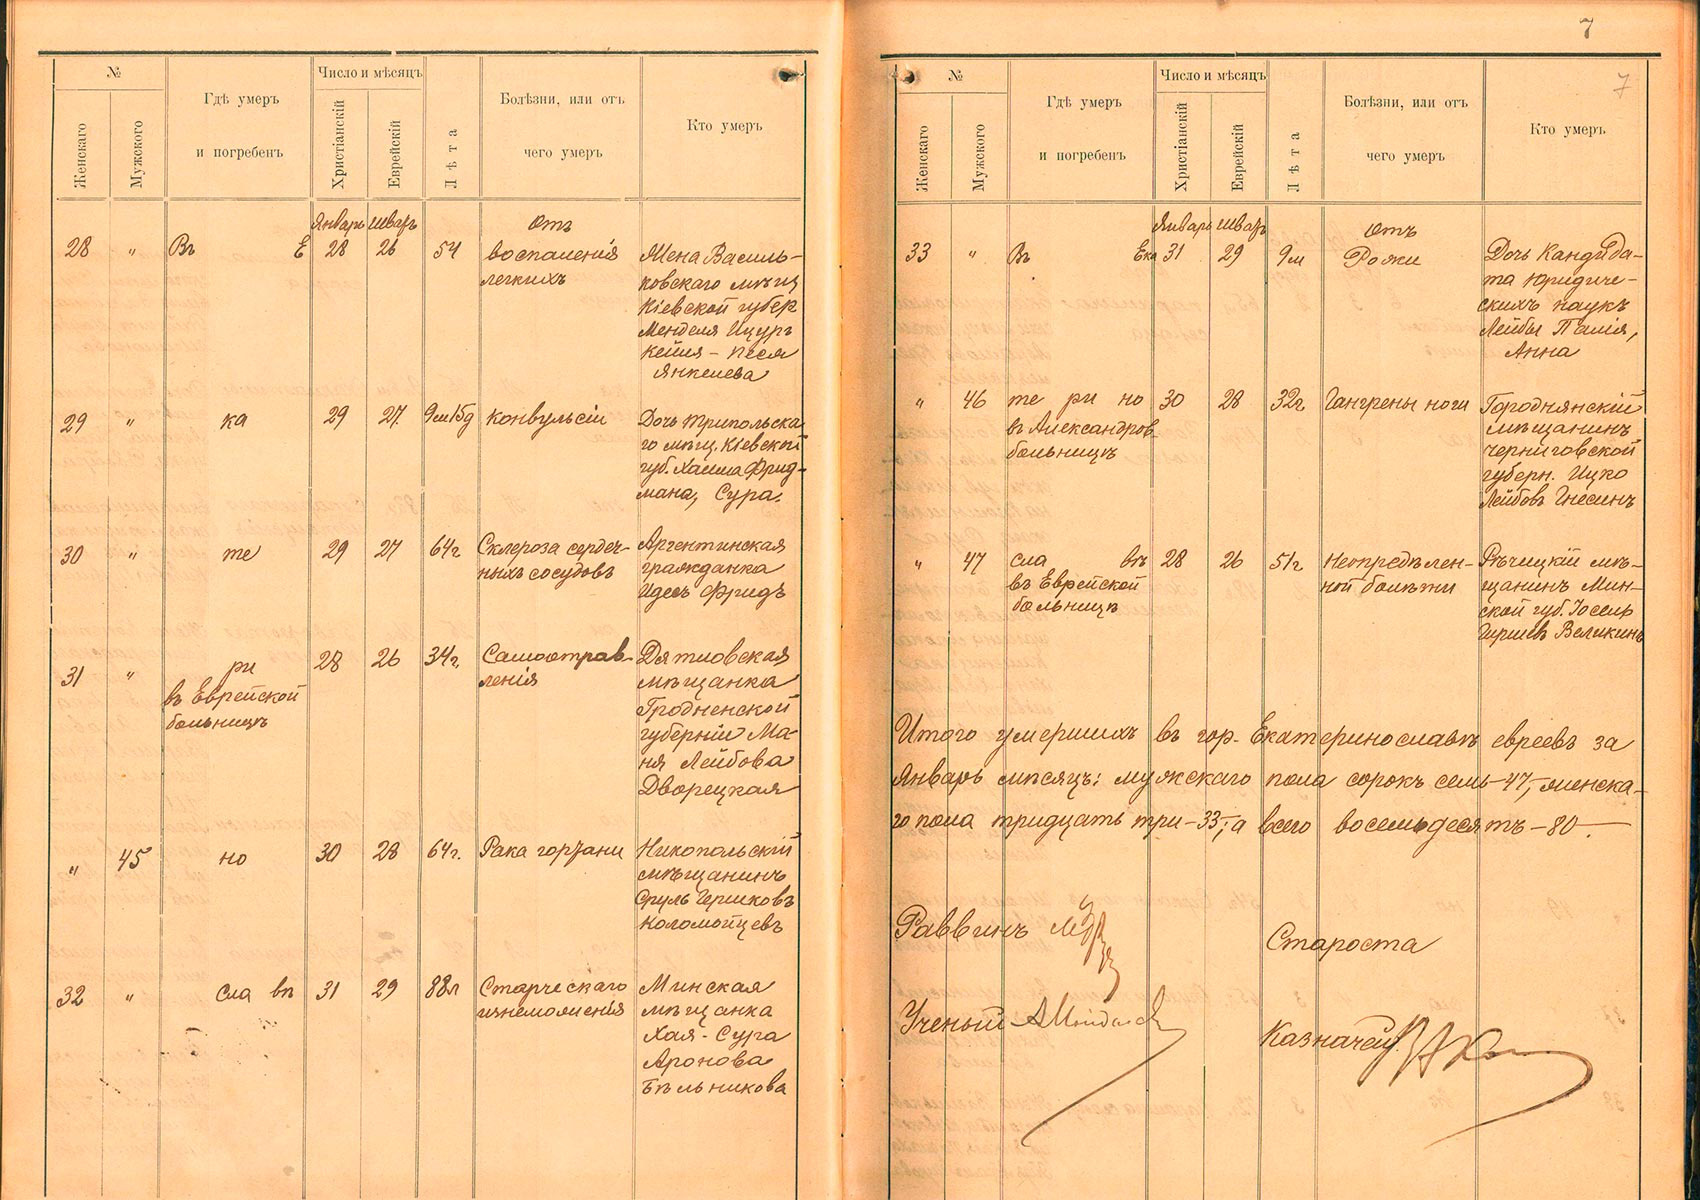 №
Число и мѣсяцъ
Гдѣ умеръ
и погребенъ
Болѣзни, или отъ
чего умеръ
Кто умеръ
Женскаго
Мужского
Христіанскій
Еврейскій
Лѣта
Январь Шватъ
отъ
28 " Въ Е 28 26 54 воспаленія
легкихъ
Жена Василь-
ковскаго мѣщ
Кіевской губер
Менделя Ицур
кейля - Песя
Янкелева
29 " ка 29 27 9м15д Конвульсіи
Дочь Трипольска
го мѣщ. Кіевской
губ. Хаима Фрид-
мана, Сура.
30 " те 29 27 64г. Склероза сердеч-
ныхъ сосудовъ
Аргентинская
гражданка
Идесъ Фридъ
31 " ри 28 26 34г. Самоотрав-
ленія
въ Еврейской
больницѣ
Дятловская
мѣщанка
Гродненской
губерніи Ма-
ня Лейбова
Дворецкая
" 45 но 30 28 64г. Рака гортани
Никопольскій
мѣщанинъ
Сруль Гершковъ
Коломойцевъ
32 " сла вѣ 31 29 88л Старческаго
изнеможенія
Минская
мѣщанка
Хая-Сура
Аронова
Бѣльникова
7
7
№
Число и мѣсяцъ
Гдѣ умеръ
и погребенъ
Болѣзни, или отъ
чего умеръ
Кто умеръ
Женскаго
Мужского
Христіанскій
Еврейскій
Лѣта
Январь Шватъ
отъ
33 " Въ Ека 31 29 9м Рожи
Дочь Кандида-
та юридиче-
скихъ наукъ
Лейбы Палія,
Анна
" 46 те ри но 30 28 32г. Гангрены ноги
въ Александров.
больницѣ
Городнянскій
мѣщанинъ
Черниговской
губерн. Ицко
Лейбовъ Гнесинъ
" 47 сла вѣ 28 26 51г Неопредѣлен-
ной болѣзни
въ Еврейской
больницѣ
Рѣчицкій мѣ-
щанинъ Мин-
ской губ. Іосель
Гиршевъ Великинъ
Итого умершихъ въ гор. Екатеринославѣ евреевъ за
Январь мѣсяцъ: мужскаго пола сорокъ семь-47, женска-
го пола тридцать три-33, а всего восемьдесятъ-80.
Раввинъ
Староста
Ученый
Казначей